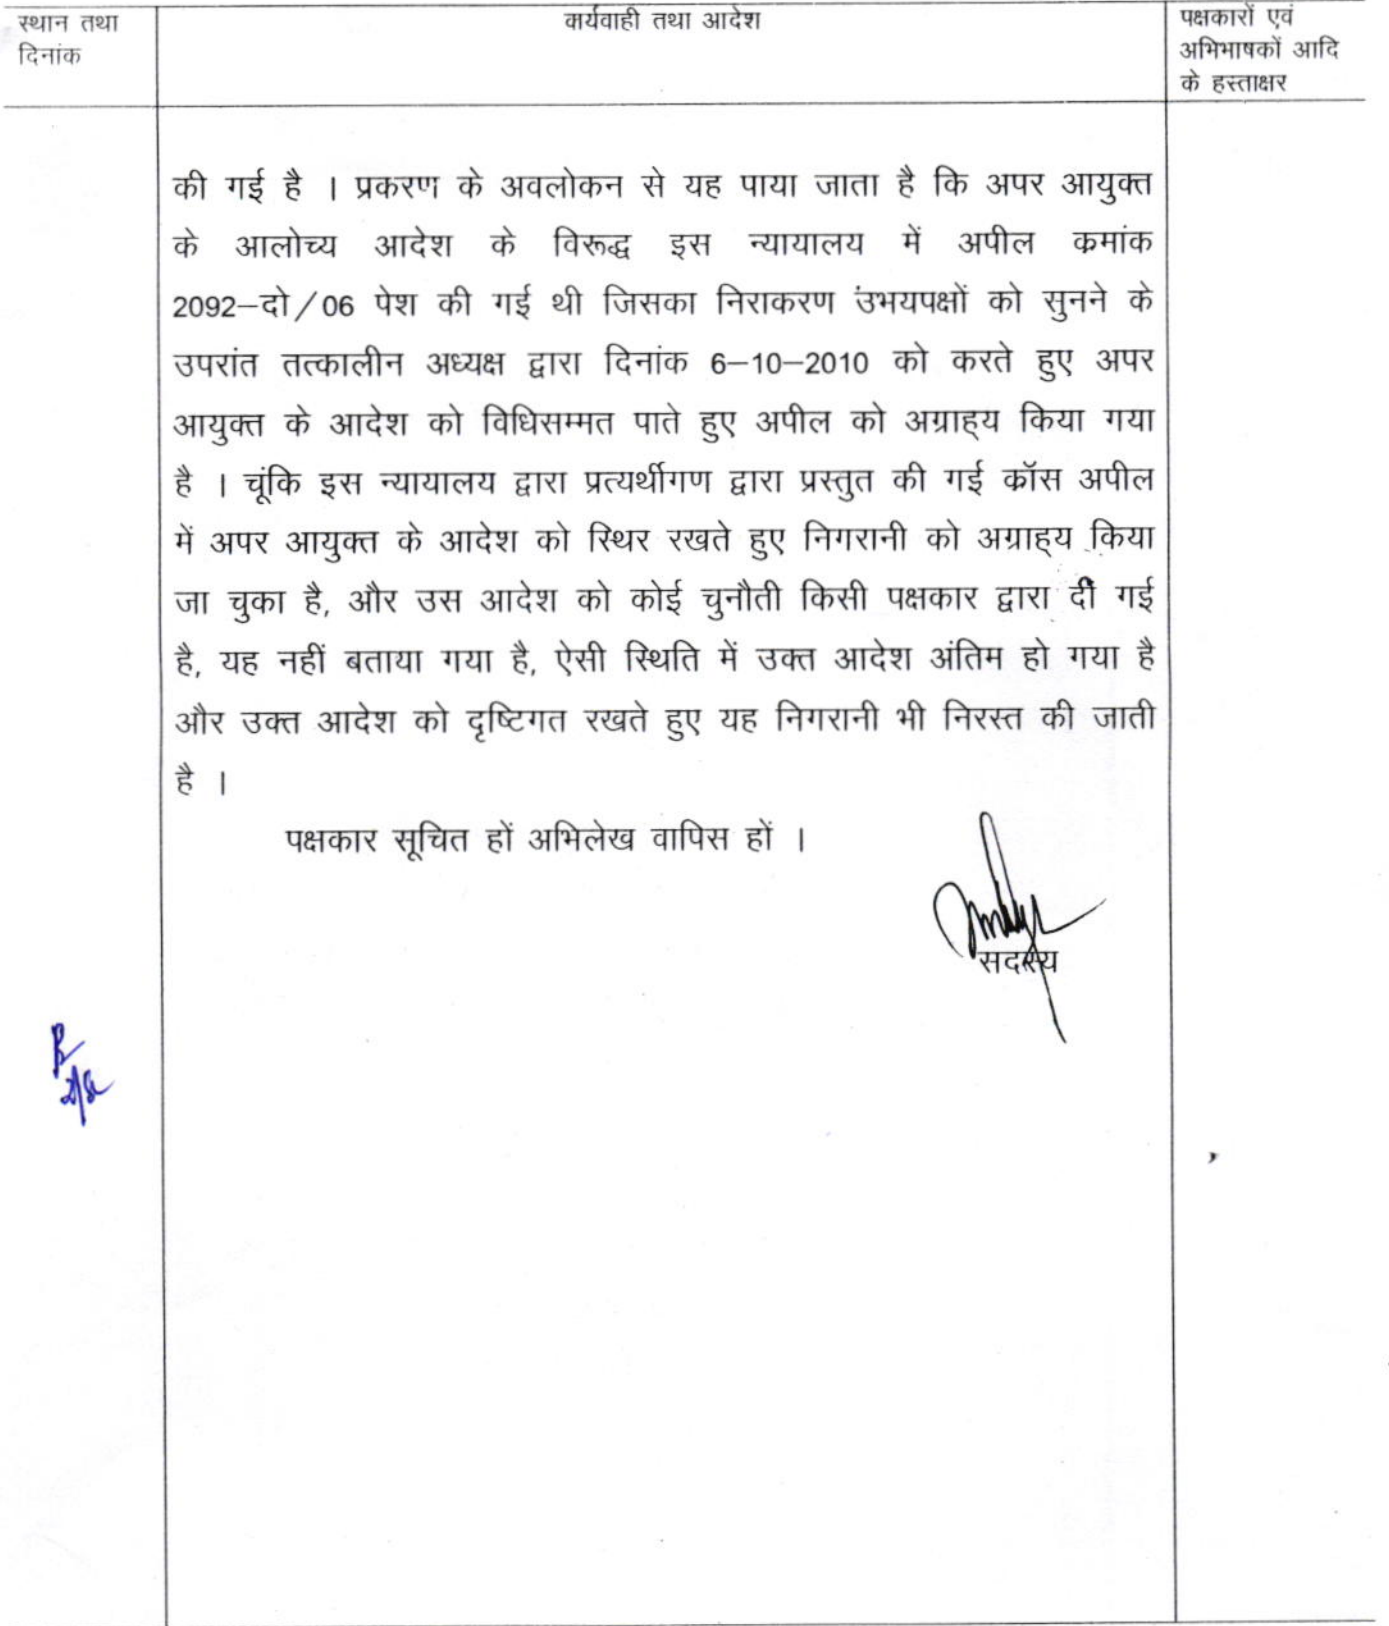 स्थान तथा
दिनांक
कार्यवाही तथा आदेश
पक्षकारों एवं
अभिभाषकों आदि
के हस्ताक्षर
की गई है । प्रकरण के अवलोकन से यह पाया जाता है कि अपर आयुक्त
के आलोच्य आदेश के विरूद्ध इस न्यायालय में अपील कमांक
2092–दो/06 पेश की गई थी जिसका निराकरण उभयपक्षों को सुनने के
उपरांत तत्कालीन अध्यक्ष द्वारा दिनांक 6–10–2010 को करते हुए अपर
आयुक्त के आदेश को विधिसम्मत पाते हुए अपील को अग्राह्य किया गया
है । चूंकि इस न्यायालय द्वारा प्रत्यर्थीगण द्वारा प्रस्तुत की गई कॉस अपील
में अपर आयुक्त के आदेश को स्थिर रखते हुए निगरानी को अग्राह्य किया
जा चुका है, और उस आदेश को कोई चुनौती किसी पक्षकार द्वारा दी गई
है, यह नहीं बताया गया है, ऐसी स्थिति में उक्त आदेश अंतिम हो गया है
और उक्त आदेश को दृष्टिगत रखते हुए यह निगरानी भी निरस्त की जाती
है ।
पक्षकार सूचित हों अभिलेख वापिस हों ।
सदस्य